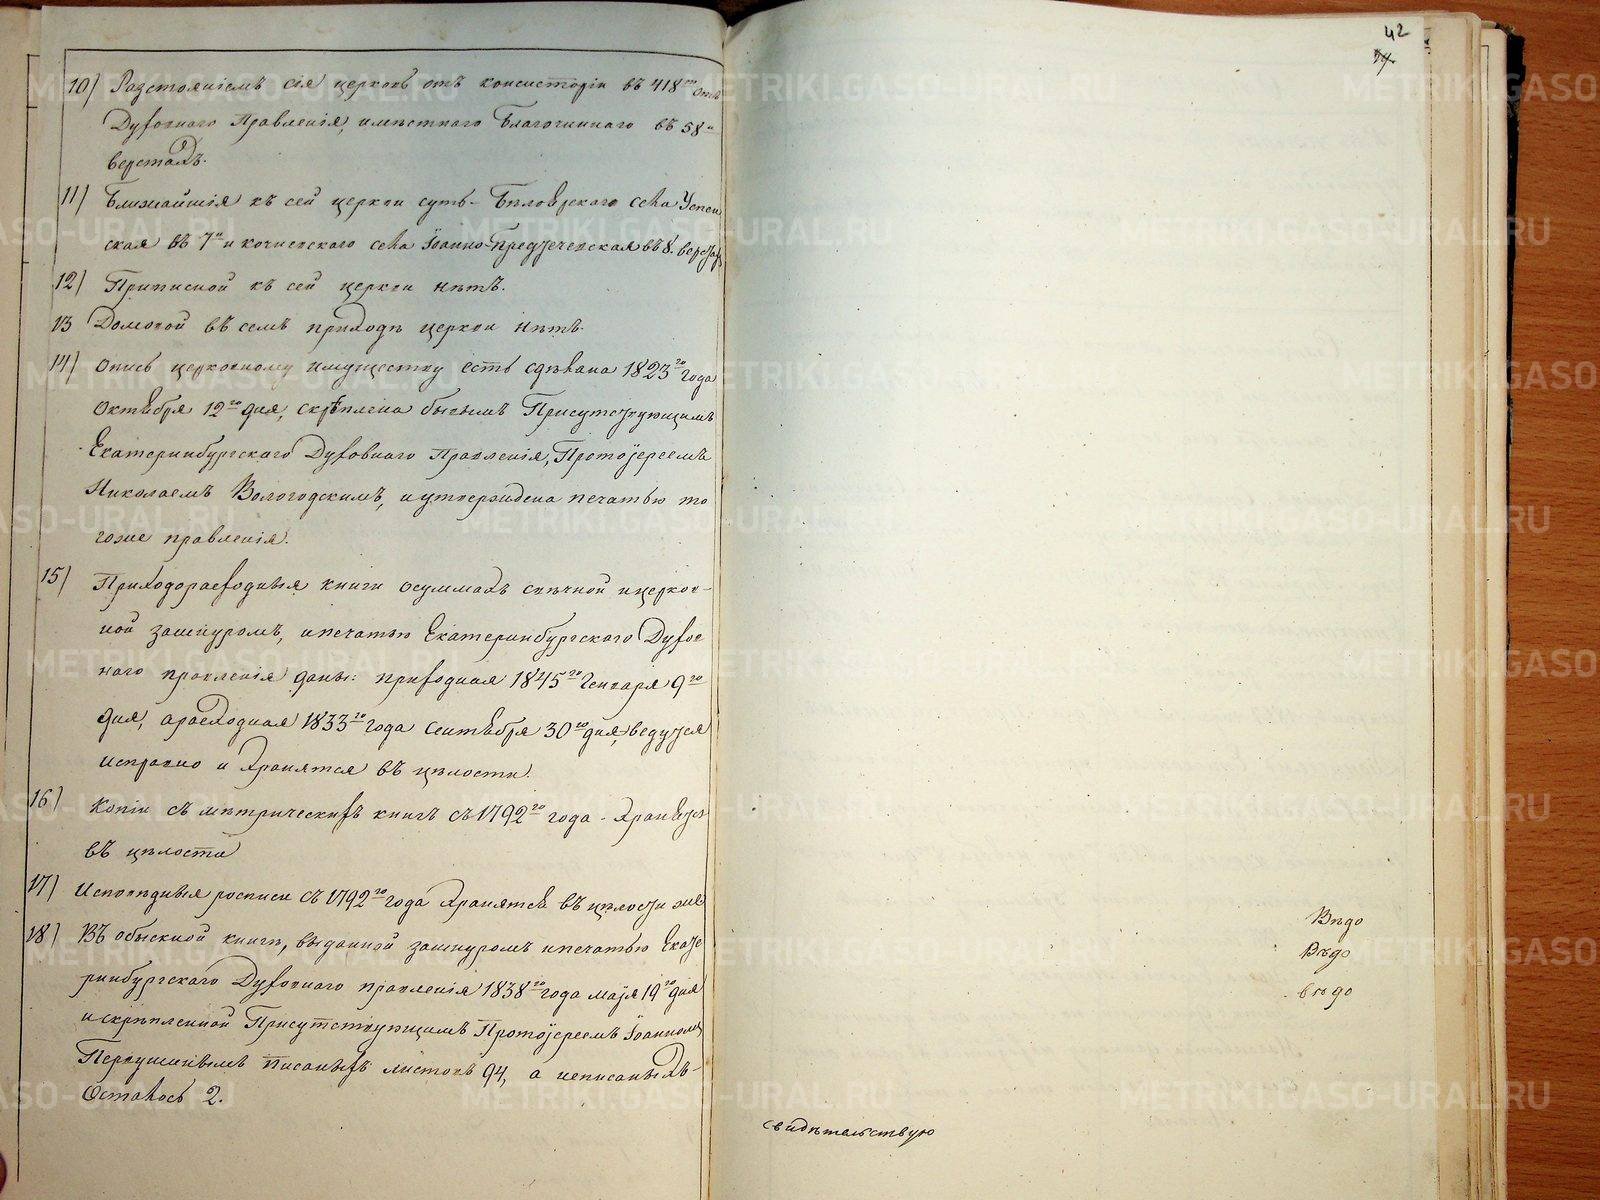 10) Разстояніемъ сія церковь отъ консисторіи въ 418ти отъ
Духовнаго Правленія, имѣстнаго Благочиннаго въ 58и
верстахъ.
11) Ближайшія къ сей церкви суть - Бѣловрскаго села Успен
ская въ 7и и кочневскаго села Іоанно-Предтечевская въ 8. верстах
12) Приписной къ сей церкви нѣтъ.
13 Домовой въ семъ приходѣ церкви нѣтъ.
14) Опись церковному имуществу есть сдѣлана 1823го года
Октября 12го дня, скрѣплена бывшемъ Присутствующимъ
Екатеринбургскаго Духовнаго Правленія, Протоіереемъ
Николаемъ Вологодскимъ, и утверждена печатью то
гоже правленія.
15) Приходорасходныя книги о суммахъ свѣчной и церков-
ной за шнуромъ, и печатью Екатеринбургскаго Духов
наго правленія даны: приходная 1845го Генваря 9го
дня, а расходная 1833го года Сентября 30го дня, ведутся
исправно и хранятся въ цѣлости.
16) Копіи съ метрическихъ книгъ съ 1792го года - хранятся
въ цѣлости
17) Исповѣдныя росписи съ 1792го года хранятся въ цѣлости же
18) Въ обыскной книгѣ, выданной за шнуромъ и печатью Екате
ринбургскаго Духовнаго правленія 1838го года маія 19го дня
и скрѣпленной Присутствующимъ Протоіереемъ Іоанномъ
писаныхъ листовъ 94, а неписаныхъ-
Осталось 2.
42
Вѣдо
Вѣдо
вѣдо
свидѣтельствую
METRIKI.GASO-URAL.RU